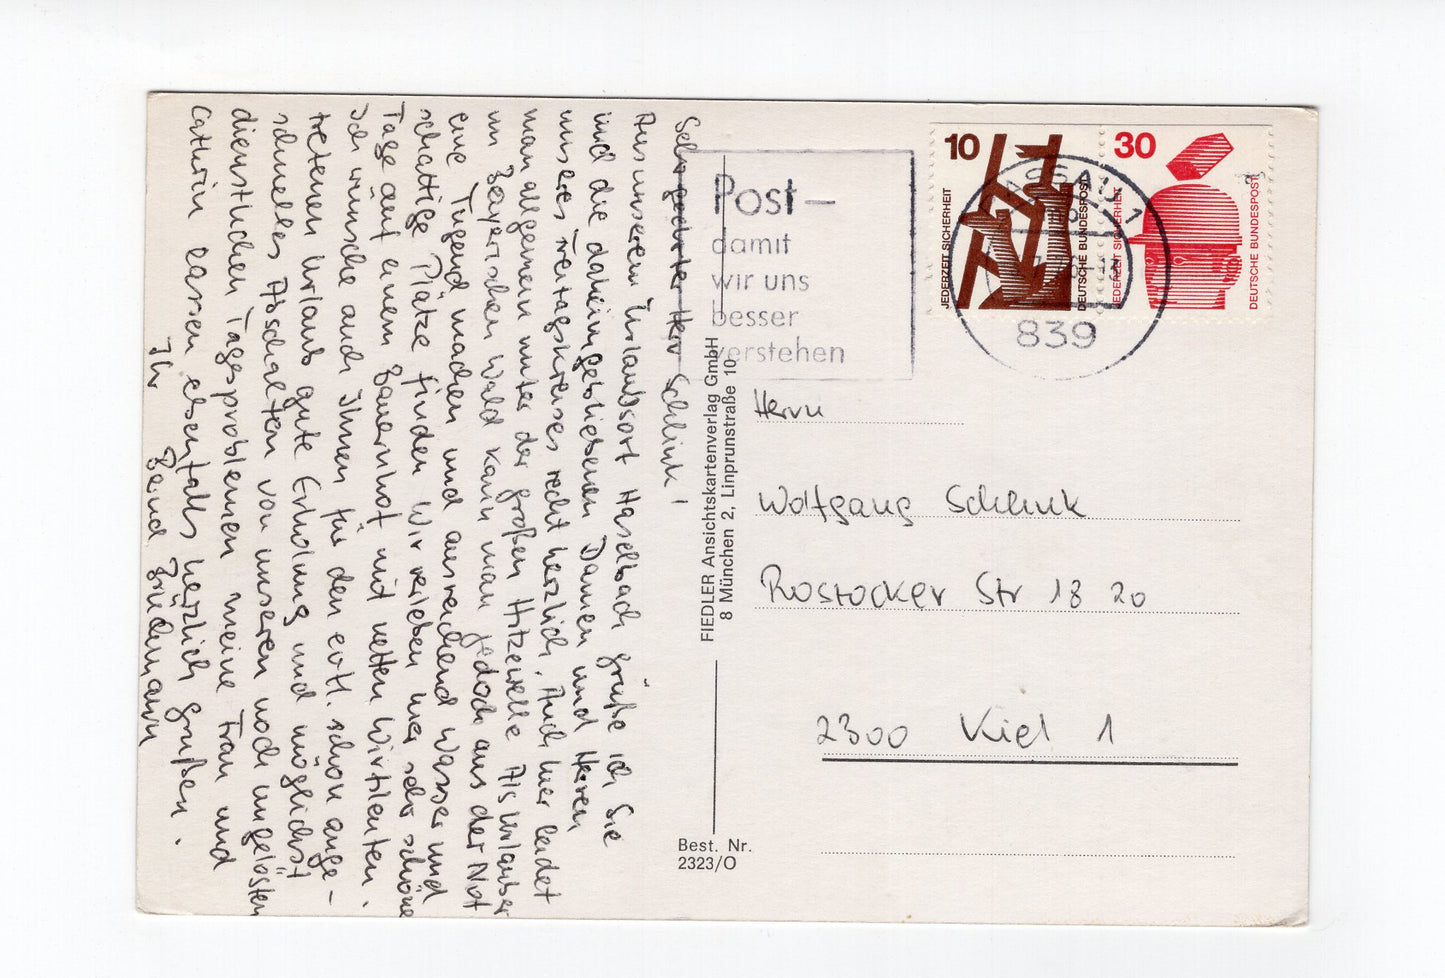 Sehr geehrter Herr Schlink!
Aus unserem Urlaubsort Haselbach grüße ich Sie
und die daheimgebliebenen Damen und Herren
unseres Freitagskreises recht herzlich. Auch hier leidet
man allgemein unter der großen Hitzewelle. Als Urlauber
im Bayerischen Wald kann man jedoch aus der Not
eine Tugend machen und ausreichend Wasser und
schattige Plätze finden. Wir verleben hier sehr schöne
Tage auf einem Bauernhof mit netten Wirtsleuten.
Ich wünsche auch Ihnen für den evtl. schon ange-
tretenen Urlaub gute Erholung und möglichst
schnelles Abschalten von unseren noch ungelösten
dienstlichen Tagesproblemen meine Frau und
Cathrin lassen ebenfalls herzlich grüßen.
Ihr
Bernd Brüdemann
Post –
damit
wir uns
besser
verstehen
10
JEDERZEIT SICHERHEIT
DEUTSCHE BUNDESPOST
30
JEDERZEIT SICHERHEIT
DEUTSCHE BUNDESPOST
PASSAU 1
839
FIEDLER Ansichtskartenverlag GmbH
8 München 2, Linprunstraße 10
Herrn
Wolfgang Schlink
Rostocker Str 18 20
2300 Kiel 1
Best. Nr.
2323/O